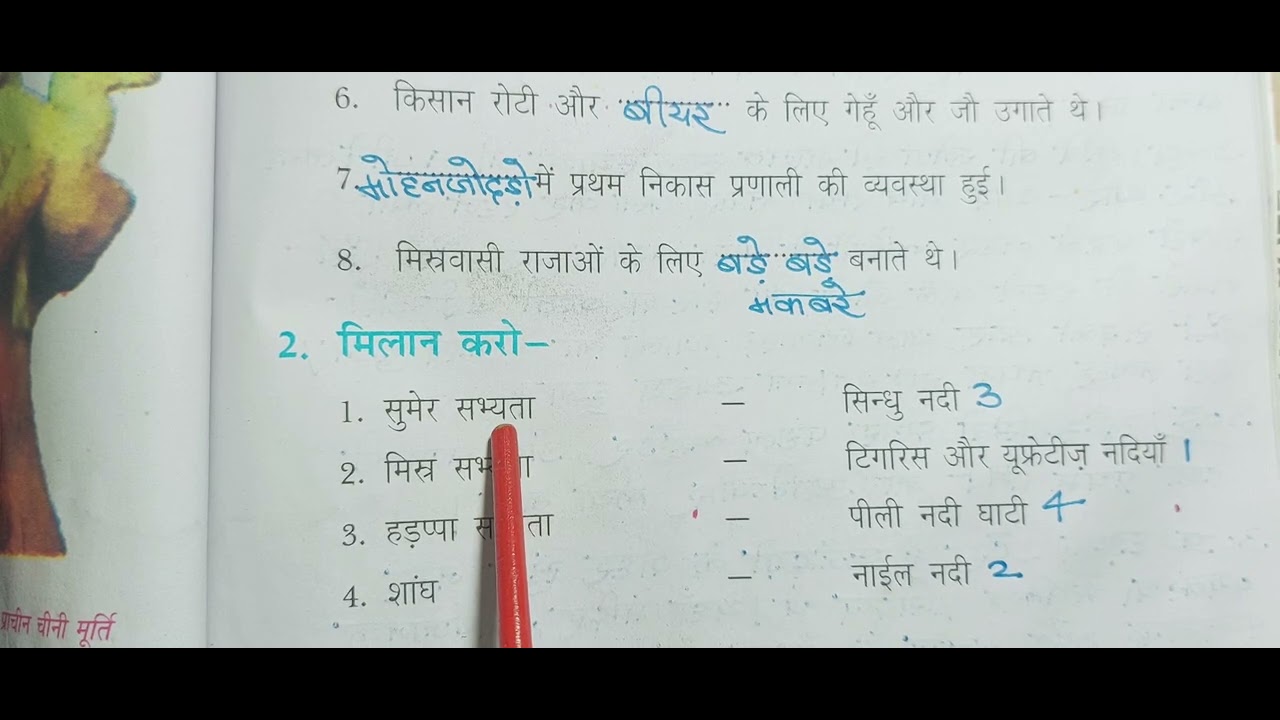 6. किसान रोटी और बीयर के लिए गेहूँ और जौ उगाते थे।
7. मोहनजोदड़ो में प्रथम निकास प्रणाली की व्यवस्था हुई।
8. मिस्रवासी राजाओं के लिए बड़े बड़े बनाते थे।
मकबरे
2. मिलान करो–
1. सुमेर सभ्यता – सिन्धु नदी 3
2. मिस्र – टिगरिस और यूफ्रेटीज़ नदियाँ 1
3. हड़प्पा – पीली नदी घाटी 4
4. शांघ – नाईल नदी 2
प्राचीन चीनी मूर्ति